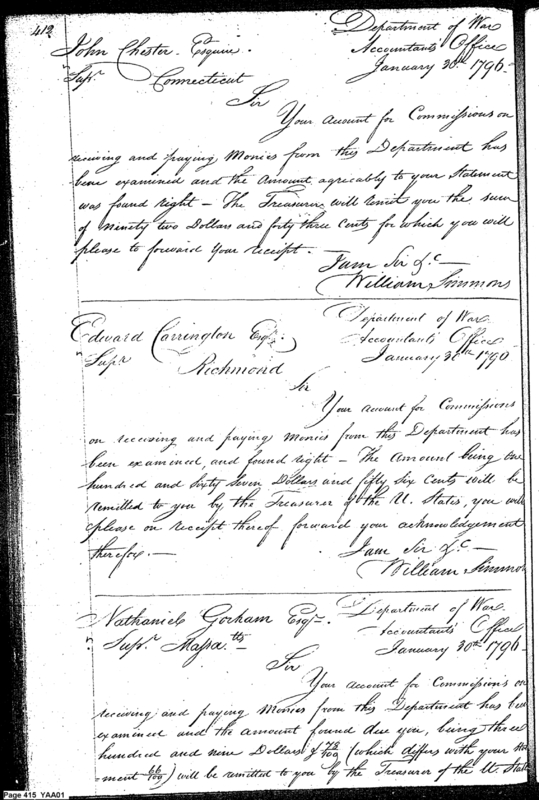 412
Department of War
John Chester Esquire
Accountants Office
Supr. Connecticut
January 30th 1796
Sir
Your Account for Commissions on
receiving and paying Monies from this Department has
been examined and the Amount agreeably to your Statement
was found right — The Treasurer will remit you the sum
of ninety two Dollars and forty three Cents for which you will
please to forward your receipt.
I am Sir &c —
William Simmons
Edward Carrington Esqr.
Department of War
Accountants Office
Supr. Richmond
January 30th 1796
Sir
Your account for Commissions
on receiving and paying Monies from this Department has
been examined, and found right — The Amount being One
hundred and sixty seven Dollars and fifty six Cents will be
remitted to you by the Treasurer of the U. States, you will
please on receipt thereof forward your acknowledgement
therefor. —
I am Sir &c —
William Simmon
Nathaniel Gorham Esqr.
Department of War
Accountants Office
Supr. Massatts
January 30th 1796
Sir
Your account for Commissions on
receiving and paying Monies from this Department has been
examined and the amount found due you, being three
hundred and nine Dollars & 78/100 (which differs with your State
ment 66/100) will be remitted to you by the Treasurer of the U. State
Page 415 YAA01